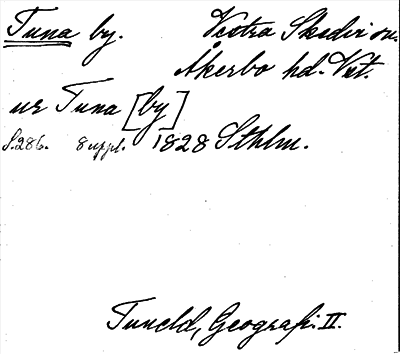 Tuna by. Västra Skedvi sn.
Åkerbo hd. Vstl.
ur Tuna [by]
S. 286. Suppl. 1828 Sthlm.
Tuneld, Geografi. II.